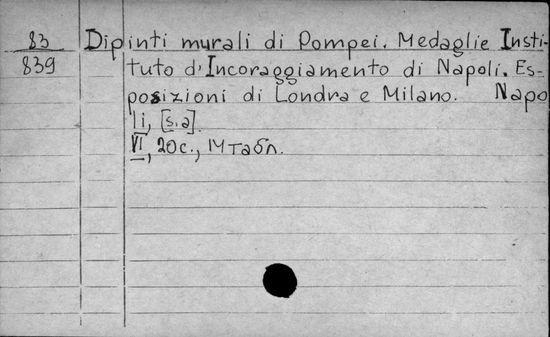 83
839
Dipinti murali di Pompei. Medaglie Insti-
tuto d'Incoraggiamento di Napoli. Es-
posizioni di Londra e Milano. Napo
li, [s.a].
VI, 20 c., M табл.